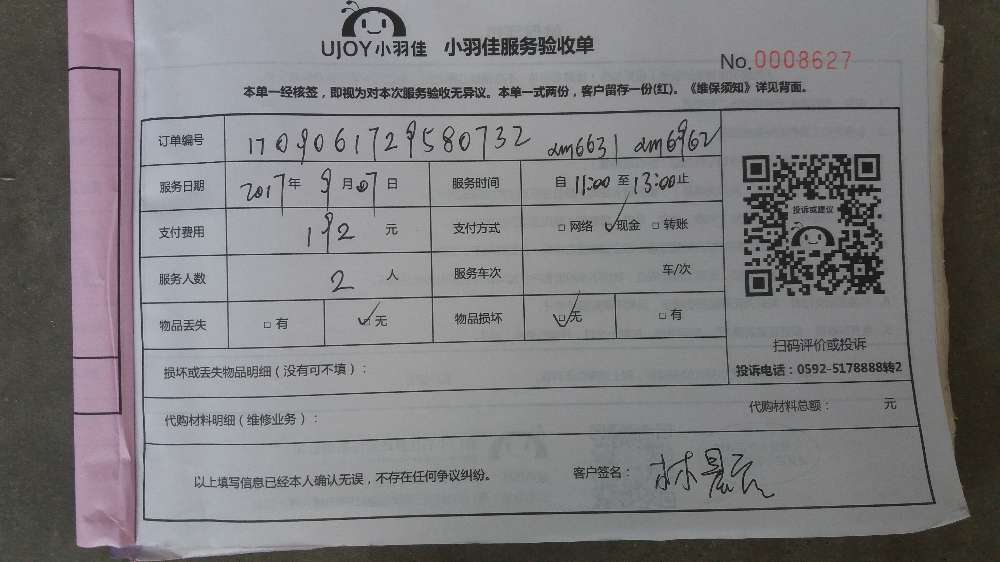 UJOY小羽佳 小羽佳服务验收单
No.0008627
本单一经核签，即视为对本次服务验收无异议。本单一式两份，客户留存一份(红)。《维保须知》详见背面。
订单编号 1709061729580732 dm6631 dm6962
服务日期 2017年 9月07日 服务时间 自11:00至13:00止
支付费用 192 元 支付方式 □网络 ☑现金 □转账
投诉或建议
服务人数 2 人 服务车次 车/次
物品丢失 □有 ☑无 物品损坏 ☑无 □有
扫码评价或投诉
损坏或丢失物品明细（没有可不填）：
投诉电话：0592-5178888转2
代购材料明细（维修业务）： 代购材料总额： 元
以上填写信息已经本人确认无误，不存在任何争议纠纷。 客户签名： 林